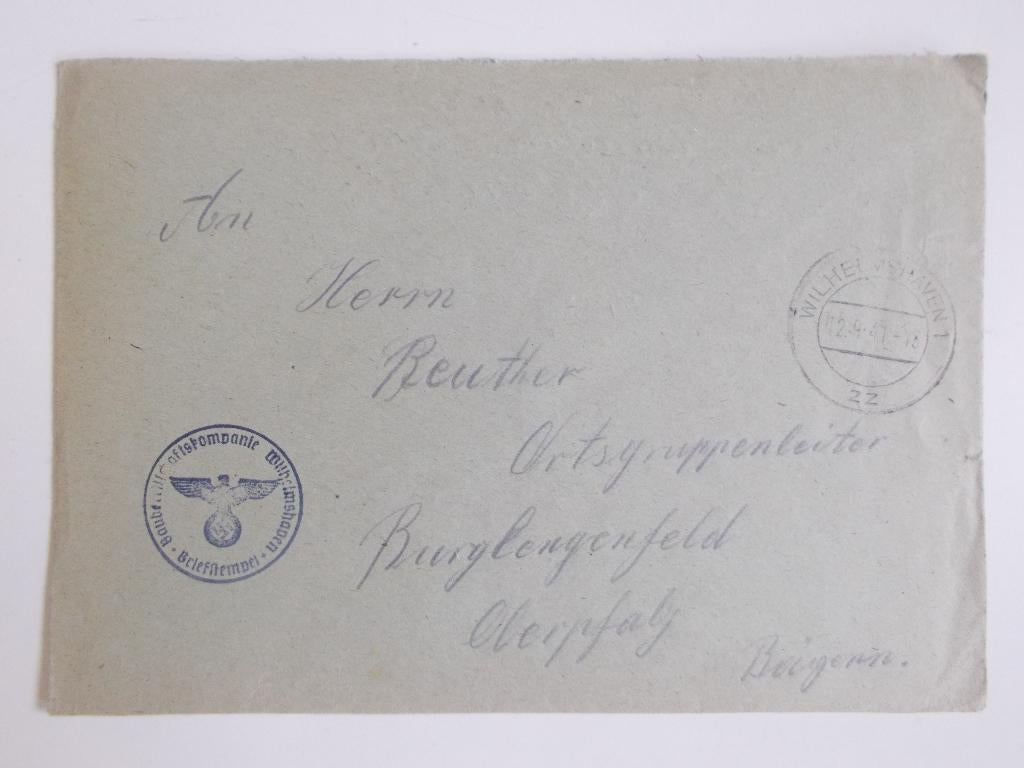 An
Herrn
Reuther
Ortsgruppenleiter
Burglengenfeld
Oberpfalz
Bayern.
WILHELMSHAVEN 1
12.9.41.-18
zz
Wilhelmshaven
• Briefstempel •